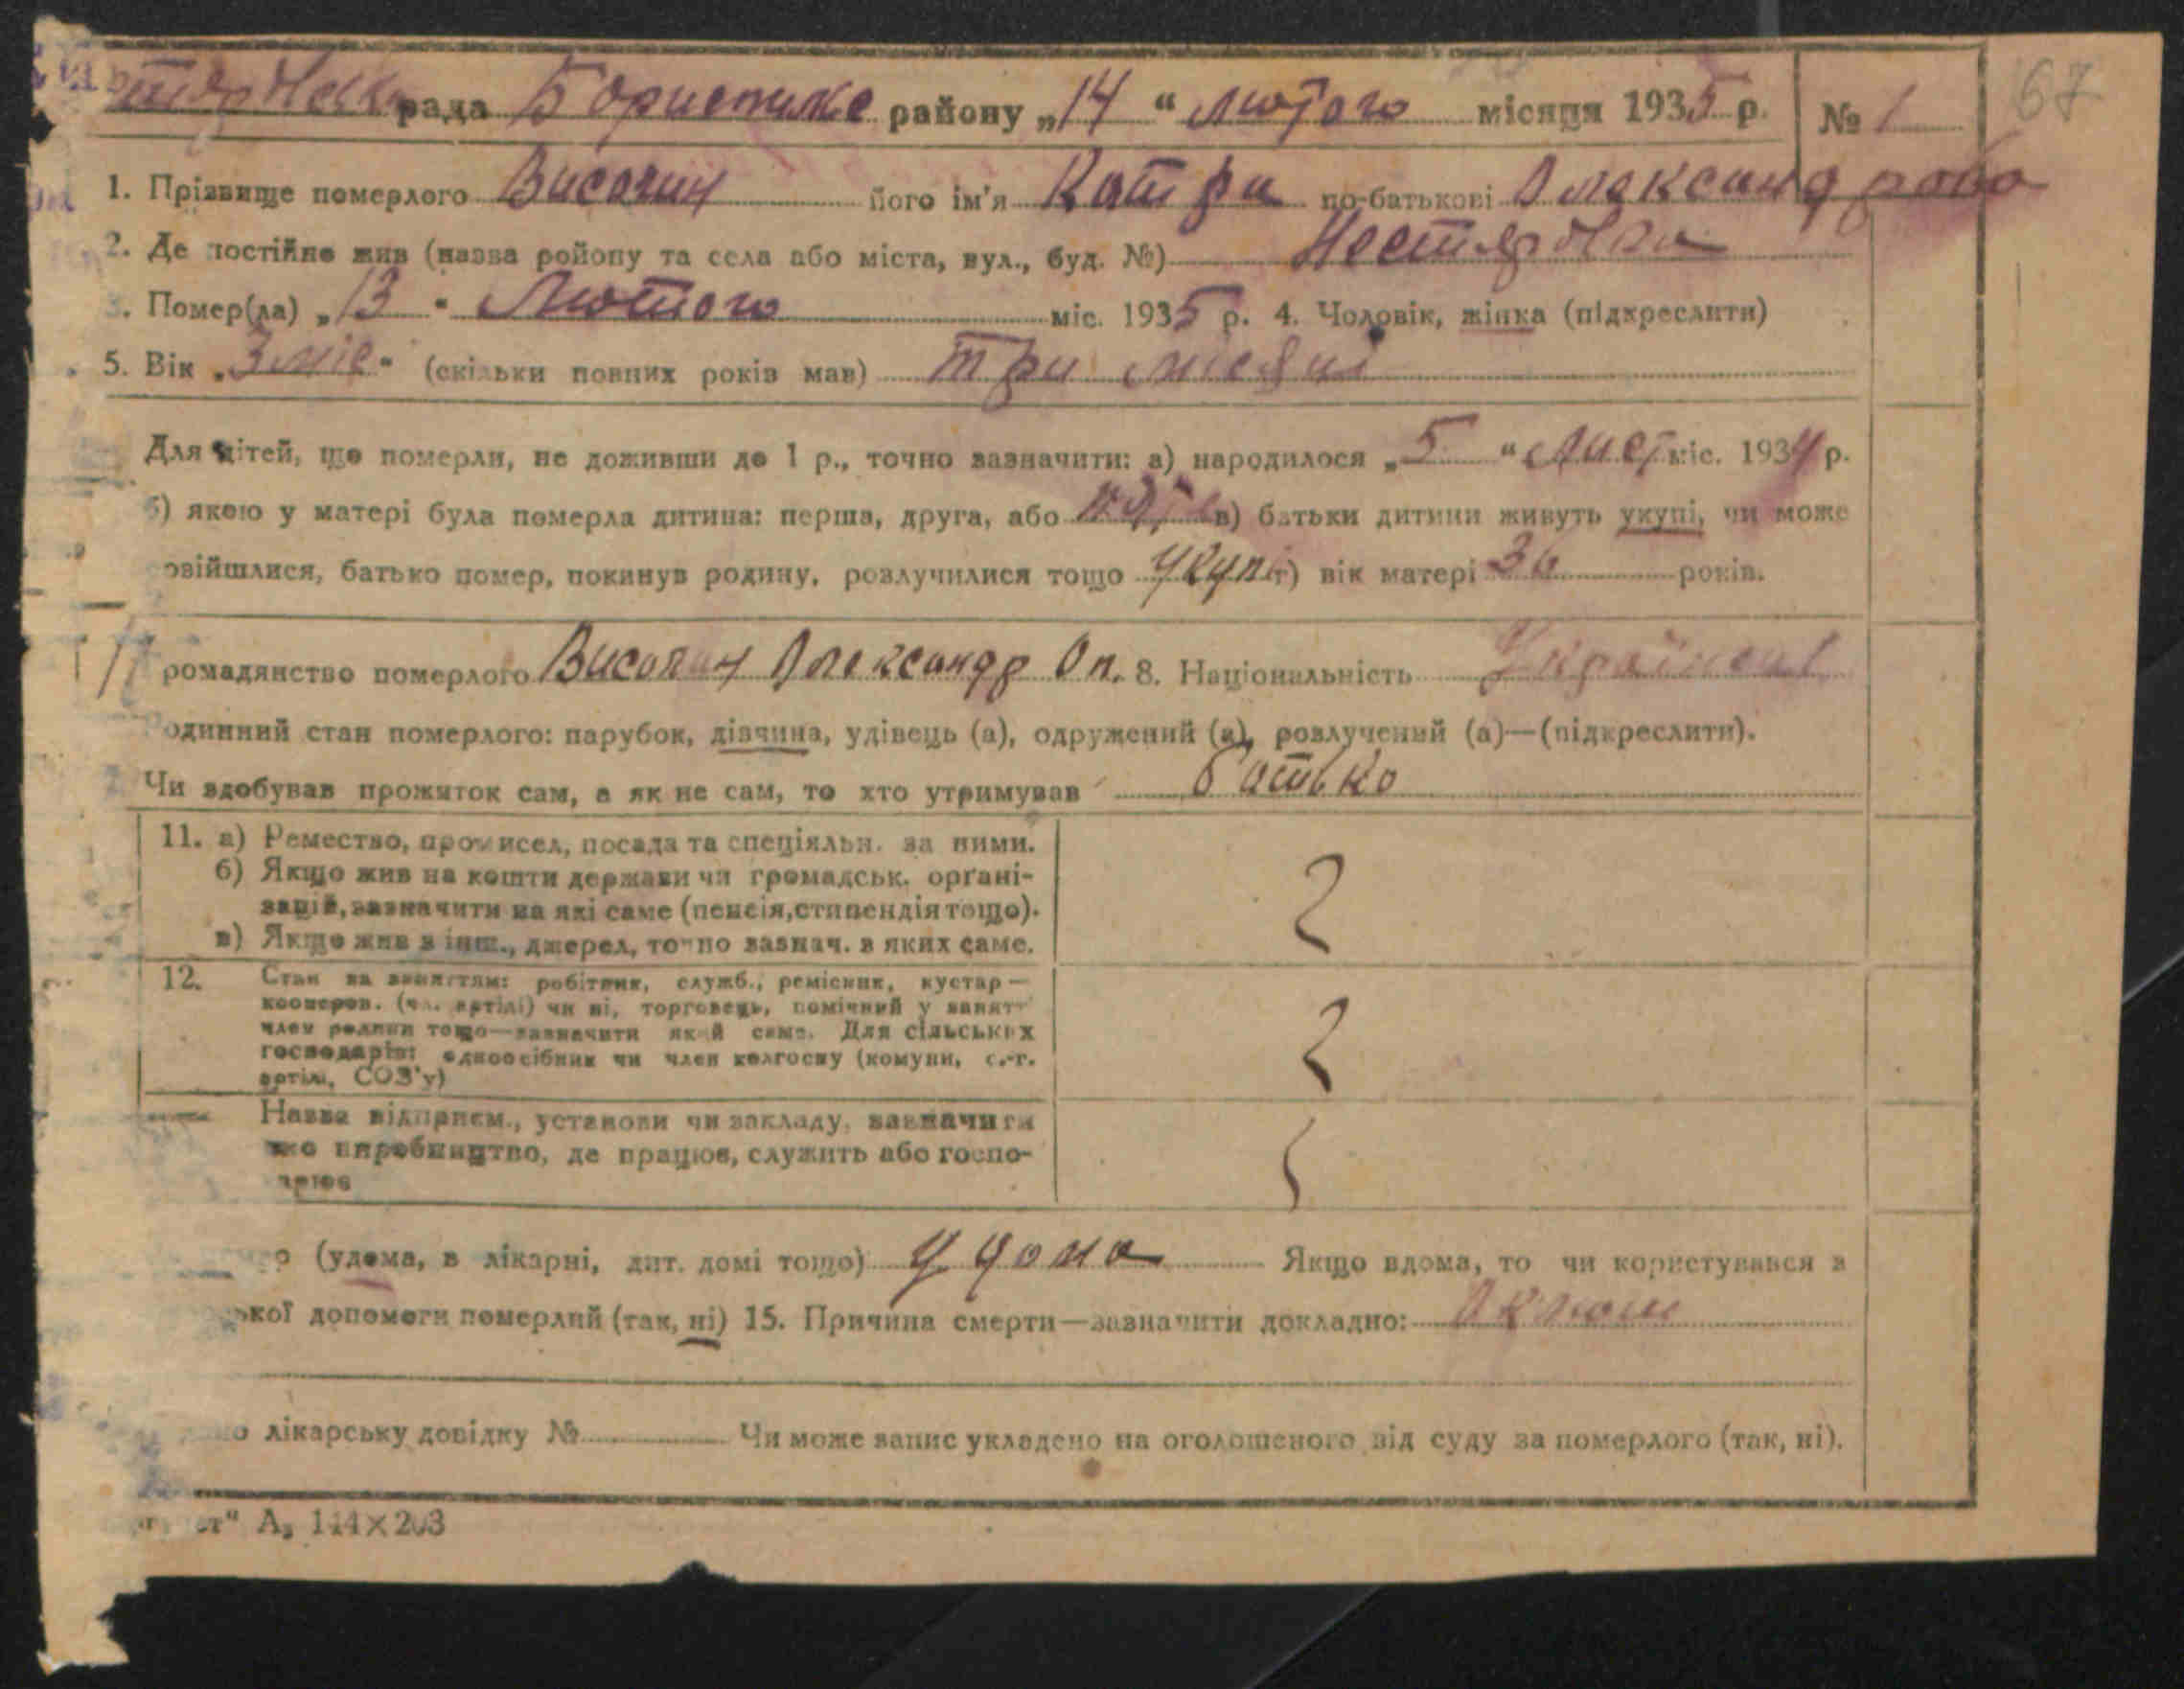 рада Бориспилке району „14“ лютого місяця 1935 р. № 1 67
1. Прізвище померлого Височин його ім'я Катря по-батькові Олександрова
2. Де постійно жив (назва району та села або міста, вул., буд. №) Нестяровка
3. Помер(ла) „13“ Лютого міс. 1935 р. 4. Чоловік, жінка (підкреслити)
5. Вік „3 міс“ (скільки повних років мав) три місяці
Для дітей, що померли, не доживши до 1 р., точно зазначити: а) народилося „5“ Лист міс. 1934 р.
б) якою у матері була померла дитина: перша, друга, або в) батьки дитини живуть укупі, чи може
овійшлися, батько помер, покинув родину, розлучилися тощо укупі г) вік матері 36 років.
ромадянство померлого Височин Олександр Оп. 8. Національність
одинний стан померлого: парубок, дівчина, удівець (а), одружений (а), розлучений (а)—(підкреслити).
Чи здобував прожиток сам, а як не сам, то хто утримував батько
11. а) Ремество, промисел, посада та спеціяльн. за ними.
б) Якщо жив на кошти держави чи громадськ. орґані-
зацій, зазначити на які саме (пенсія, стипендія тощо).
в) Якщо жив з інш., джерел, точно зазнач. з яких саме.
12. Стан за заняттям: робітник, служб., ремісник, кустар—
кооперов. (чл. артілі) чи ні, торговець, помічний у занятт
член родини тощо—зазначити який саме. Для сільських
господарів: одноосібник чи член колгоспу (комуни, с.-г.
артілі, СОЗ'у)
Назва підприєм., установи чи закладу, зазначити
яке виробництво, де працює, служить або госпо-
арює
(удома, в лікарні, дит. домі тощо) у дома Якщо вдома, то чи користувався з
ької допомоги померлий (так, ні) 15. Причина смерти—зазначити докладно:
лікарську довідку № Чи може запис укладено на оголошеного від суду за померлого (так, ні).
ст" А₅ 144×203